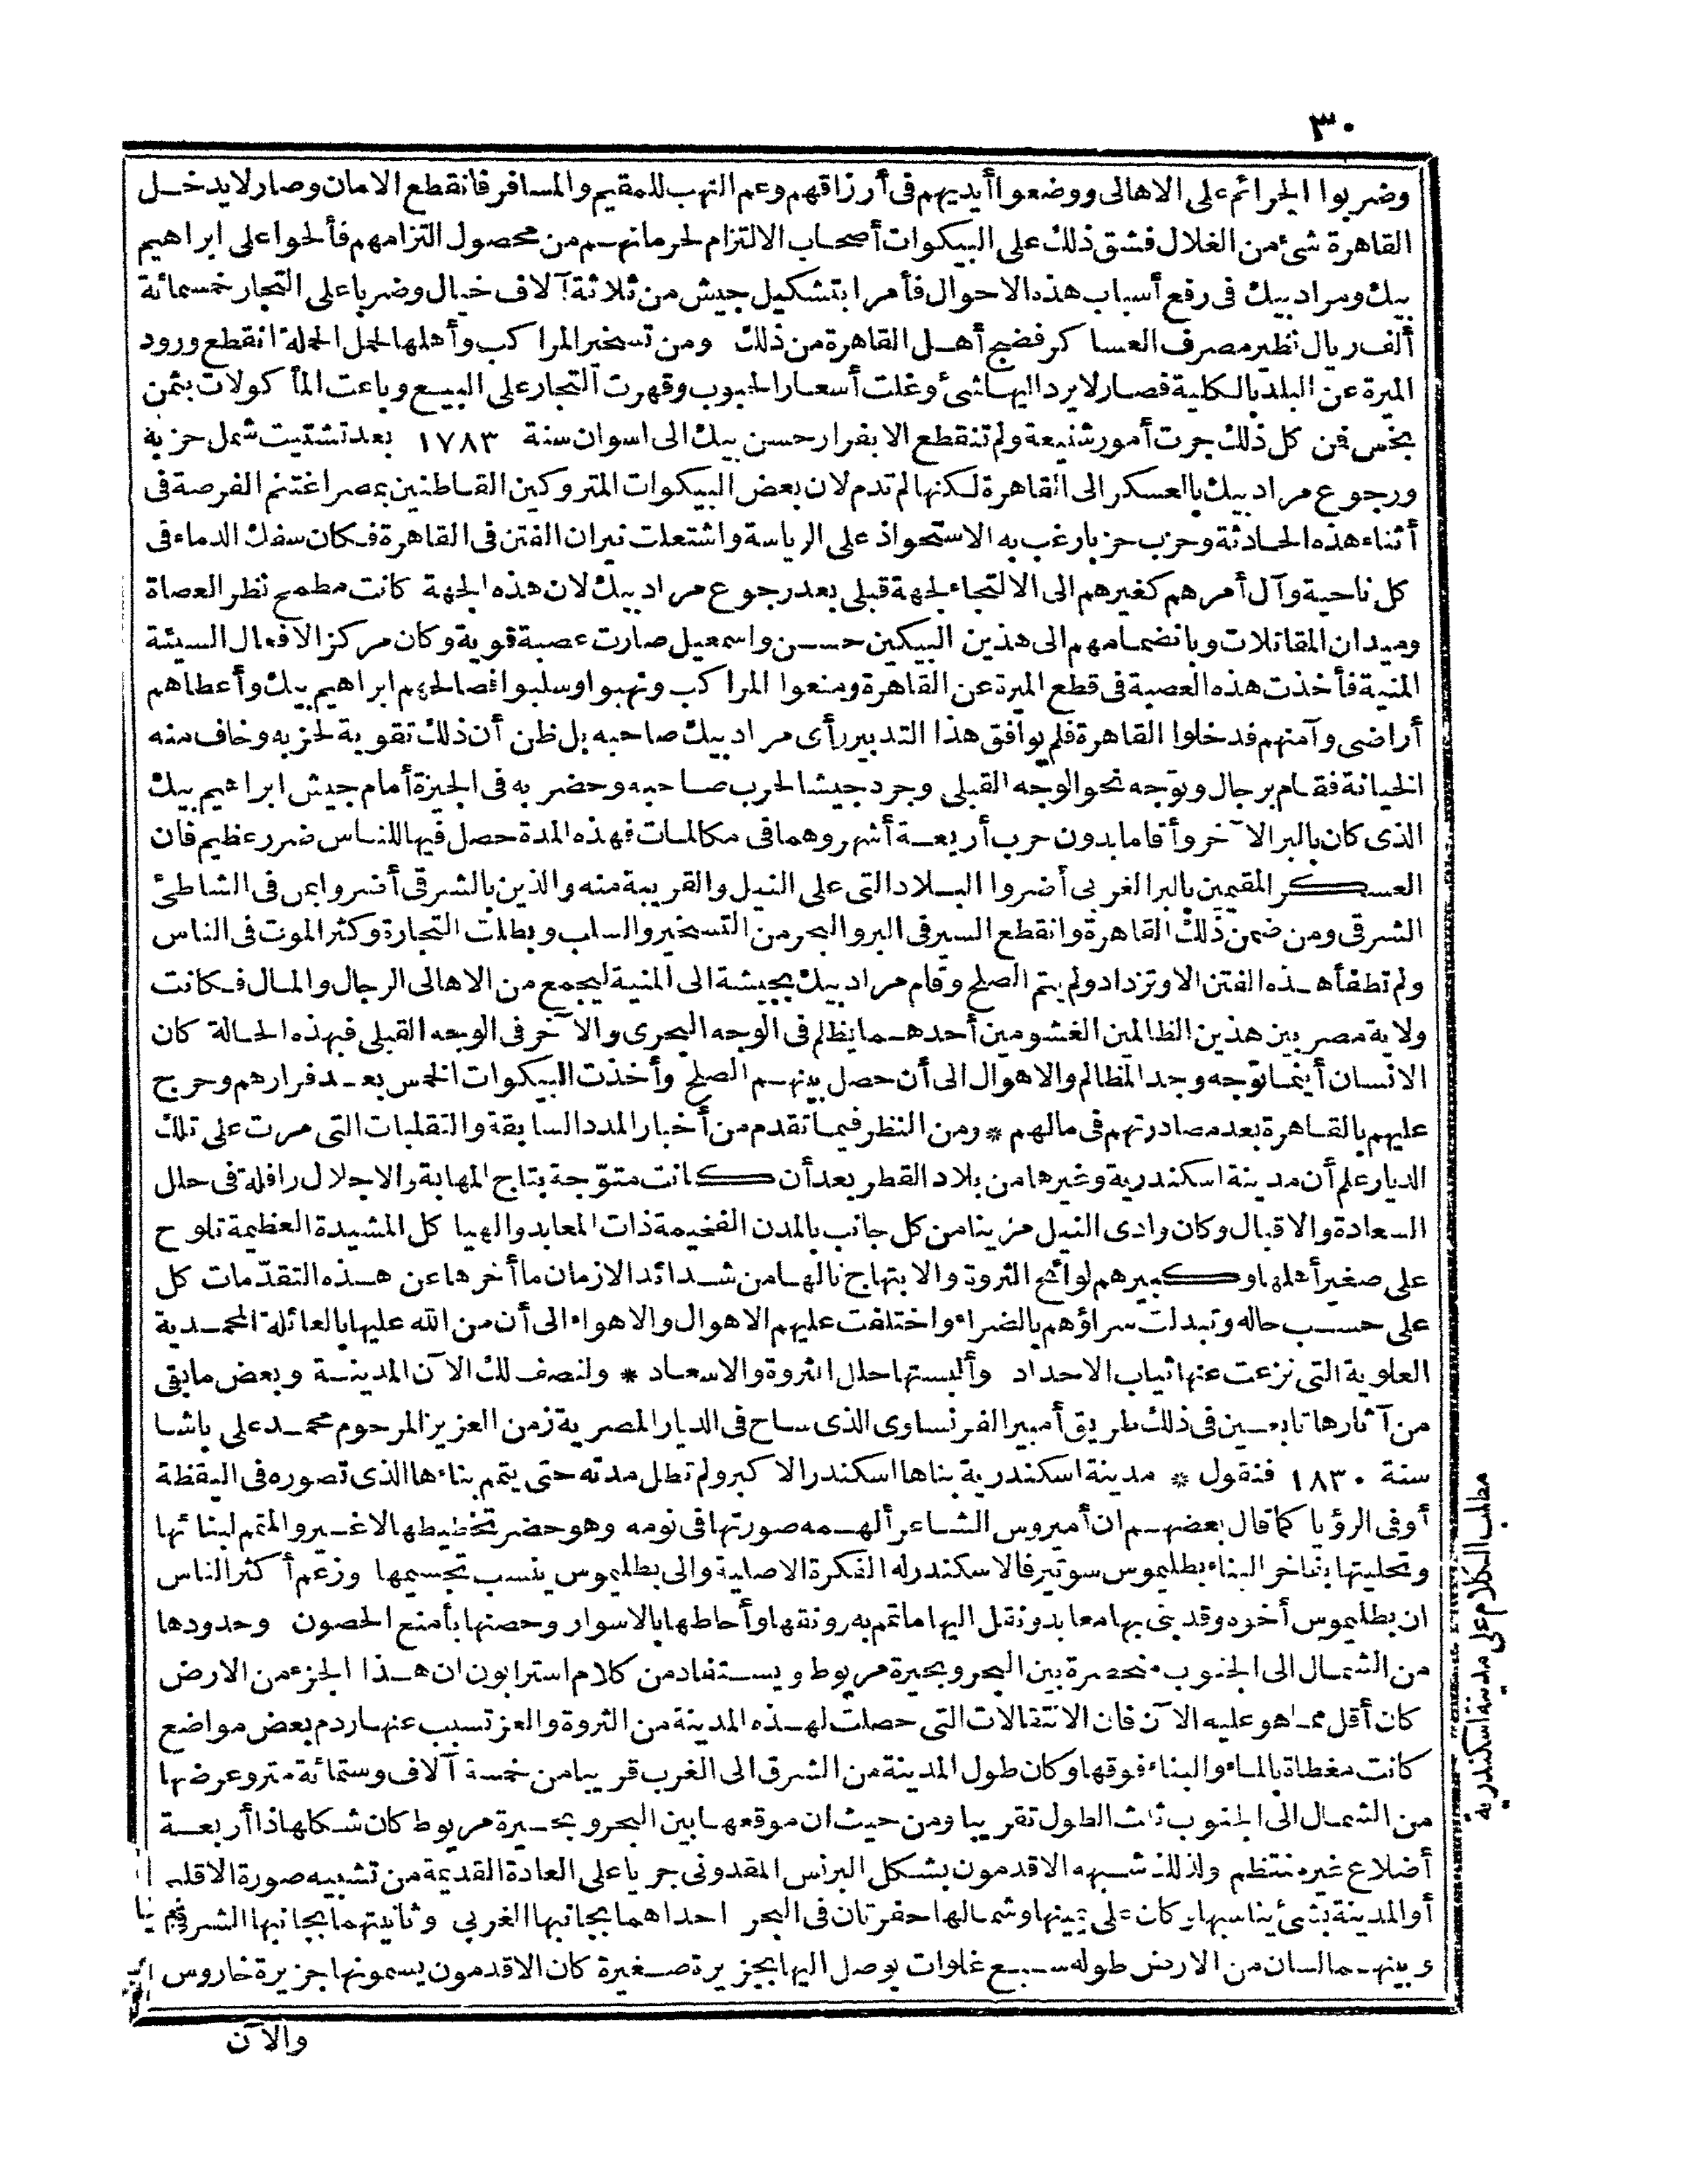 ٣٠
وضربوا الجرائم على الاهالى ووضعوا أيديهم فى أرزاقهم وعم النهب للمقيم والمسافر فانقطع الامان وصار لا يدخل
القاهرة شئ من الغلال فشق ذلك على البيكوات أصحاب الالتزام لحرمانهم من محصول التزامهم فألحوا على ابراهيم
بيك ومراد بيك فى رفع أسباب هذه الاحوال فأمرا بتشكيل جيش من ثلاثة آلاف خيال وضربا على التجار خمسمائة
ألف ريال نظير مصرف العساكر فضج أهل القاهرة من ذلك ومن تسخير المراكب وأهلها لحمل الحملة انقطع ورود
الميرة عن البلد بالكلية فصار لا يرد اليها شئ وغلت أسعار الحبوب وقهرت التجار على البيع وباعت المأكولات بثمن
بخس فمن كل ذلك جرت أمور شنيعة ولم تنقطع الا بفرار حسن بيك الى اسوان سنة ١٧٨٣ بعد تشتيت شمل حزبه
ورجوع مراد بيك بالعسكر الى القاهرة لكنها لم تدم لان بعض البيكوات المتروكين القاطنين بمصر اغتنم الفرصة فى
أثناء هذه الحادثة وحزب حزبا رغب به الاستحواذ على الرياسة واشتعلت نيران الفتن فى القاهرة فكان سفك الدماء فى
كل ناحية وآل أمرهم كغيرهم الى الالتجاء لجهة قبلى بعد رجوع مراد بيك لان هذه الجهة كانت مطمح نظر العصاة
وميدان المقاتلات وبانضمامهم الى هذين البيكين حسن واسمعيل صارت عصبة قوية وكان مركز الافعال السيئة
المنية فأخذت هذه العصبة فى قطع الميرة عن القاهرة ومنعوا المراكب ونهبوا وسلبوا فصالحهم ابراهيم بيك وأعطاهم
أراضى وآمنهم فدخلوا القاهرة فلم يوافق هذا التدبير رأى مراد بيك صاحبه بل ظن أن ذلك تقوية لحزبه وخاف منه
الخيانة فقام برجال وتوجه نحو الوجه القبلى وجرد جيشا لحرب صاحبه وحضر به فى الجيزة أمام جيش ابراهيم بيك
الذى كان بالبر الآخر وأقاما بدون حرب أربعة أشهر وهما فى مكالمات فهذه المدة حصل فيها للناس ضرر عظيم فان
العسكر المقيمين بالبر الغربى أضروا البلاد التى على النيل والقريبة منه والذين بالشرقى أضروا بمن فى الشاطئ
الشرقى ومن ضمن ذلك القاهرة وانقطع السير فى البر والبحر من التسخير والسلب وبطلت التجارة وكثر الموت فى الناس
ولم تطفأ هذه الفتن الا وتزداد ولم يتم الصلح وقام مراد بيك بجيشة الى المنية ليجمع من الاهالى الرجال والمال فكانت
ولاية مصر بين هذين الظالمين الغشومين أحدهما يظلم فى الوجه البحرى والآخر فى الوجه القبلى فبهذه الحالة كان
الانسان أينما توجه وجد المظالم والاهوال الى أن حصل بينهم الصلح وأخذت البيكوات الخمس بعد فرارهم وحرج
عليهم بالقاهرة بعد مصادرتهم فى مالهم * ومن النظر فيما تقدم من أخبار المدد السابقة والتقلبات التى مرت على تلك
الديار علم أن مدينة اسكندرية وغيرها من بلاد القطر بعد أن كانت متوّجة بتاج المهابة والاجلال رافلة فى حلل
السعادة والاقبال وكان وادى النيل مزينا من كل جانب بالمدن الفخيمة ذات المعابد والهياكل المشيدة العظيمة تلوح
على صغير أهلها وكبيرهم لوائح الثروة والابتهاج نالها من شدائد الازمان ما أخرها عن هذه التقدّمات كل
على حسب حاله وتبدلت سراؤهم بالضراء واختلفت عليهم الاهوال والاهواء الى أن من الله عليها بالعائلة المحمدية
العلوية التى نزعت عنها ثياب الاحداد وألبستها حلل الثروة والاسعاد * ولنصف لك الآن المدينة وبعض ما بقى
من آثارها تابعين فى ذلك طريق أمبير الفرنساوى الذى ساح فى الديار المصرية زمن العزيز المرحوم محمد على باشا
سنة ١٨٣٠ فنقول * مدينة اسكندرية بناها اسكندر الاكبر ولم تطل مدته حتى يتم بناءها الذى تصوره فى اليقظة
أو فى الرؤيا كما قال بعضهم ان أميروس الشاعر ألهمه صورتها فى نومه وهو حضر تخطيطها لا غير والمتمم لبنائها
وتحليتها بفاخر البناء بطليموس سوتير فالاسكندر له الفكرة الاصلية والى بطليموس ينسب تجسيمها وزعم أكثر الناس
ان بطليموس أخوه وقد بنى بها معابد ونقل اليها ما تم به رونقها وأحاطها بالاسوار وحصنها بأمنع الحصون وحدودها
من الشمال الى الجنوب منحصرة بين البحر وبحيرة مريوط ويستفاد من كلام استرابون ان هذا الجزء من الارض
كان أقل مما هو عليه الآن فان الانتقالات التى حصلت لهذه المدينة من الثروة والعز تسبب عنها ردم بعض مواضع
كانت مغطاة بالماء والبناء فوقها وكان طول المدينة من الشرق الى الغرب قريبا من خمسة آلاف وستمائة متر وعرضها
من الشمال الى الجنوب ثلث الطول تقريبا ومن حيث ان موقعها بين البحر وبحيرة مريوط كان شكلها ذا أربعة
أضلاع غير منتظم ولذلك شبهه الاقدمون بشكل البرنس المقدونى جريا على العادة القديمة من تشبيه صورة الاقليم
أو المدينة بشئ يناسبها وكان على يمينها وشمالها حفرتان فى البحر احداهما بجانبها الغربى وثانيتهما بجانبها الشرقى
وبينهما لسان من الارض طوله سبع غلوات يوصل اليها بجزيرة صغيرة كان الاقدمون يسمونها جزيرة خاروس
والآن
مطلب الكلام على مدينة اسكندرية